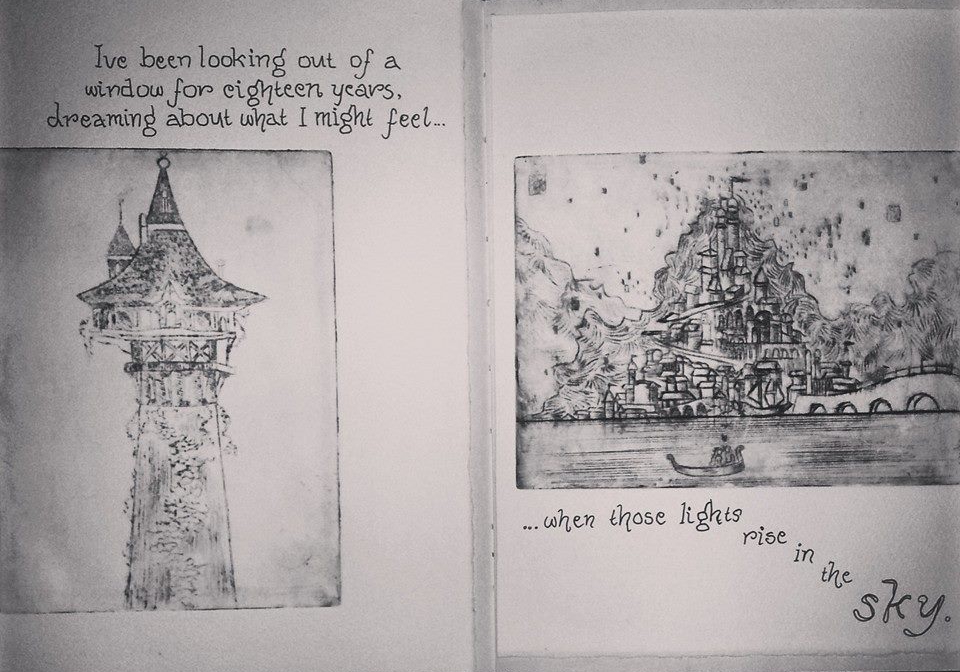 Ive been looking out of a
window for eighteen years,
dreaming about what I might feel...
...when those lights
rise
in
the
sky.